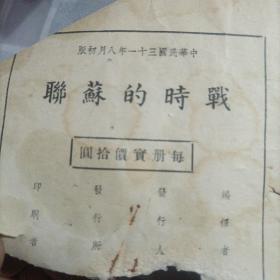 中華民國三十一年八月初版
戰時的蘇聯
每册實價拾圓
編譯者
發行人
發行所
印刷者